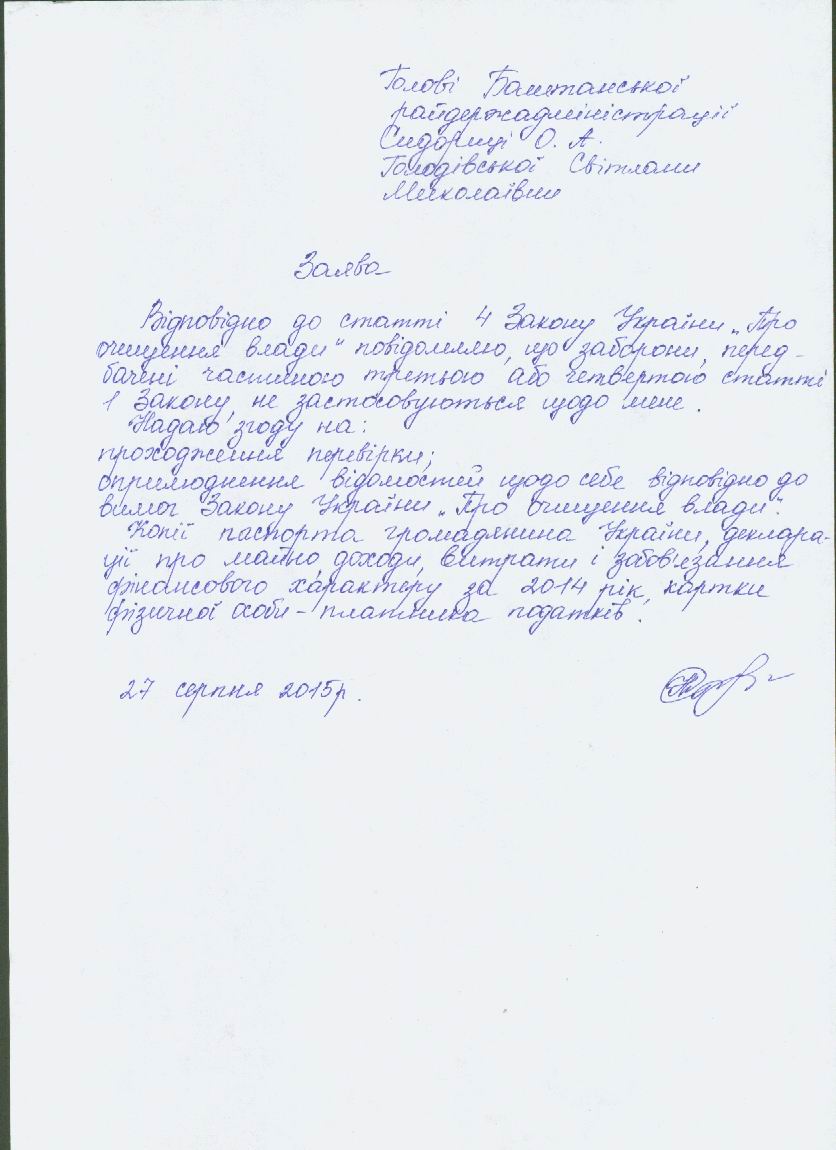 Голові Баштанської
райдержадміністрації
Сидориці О. А.
Голодівської Світлани
Миколаївни
Заява
Відповідно до статті 4 Закону України „Про
очищення влади“ повідомляю, що заборони, перед-
бачені частиною третьою або четвертою статті
1 Закону, не застосовуються щодо мене.
Надаю згоду на:
проходження перевірки;
оприлюднення відомостей щодо себе відповідно до
вимог Закону України „Про очищення влади“.
Копії паспорта громадянина України, деклара-
ції про майно, доходи, витрати і забов'язання
фінансового характеру за 2014 рік, картки
фізичної особи – платника податків.
27 серпня 2015р.